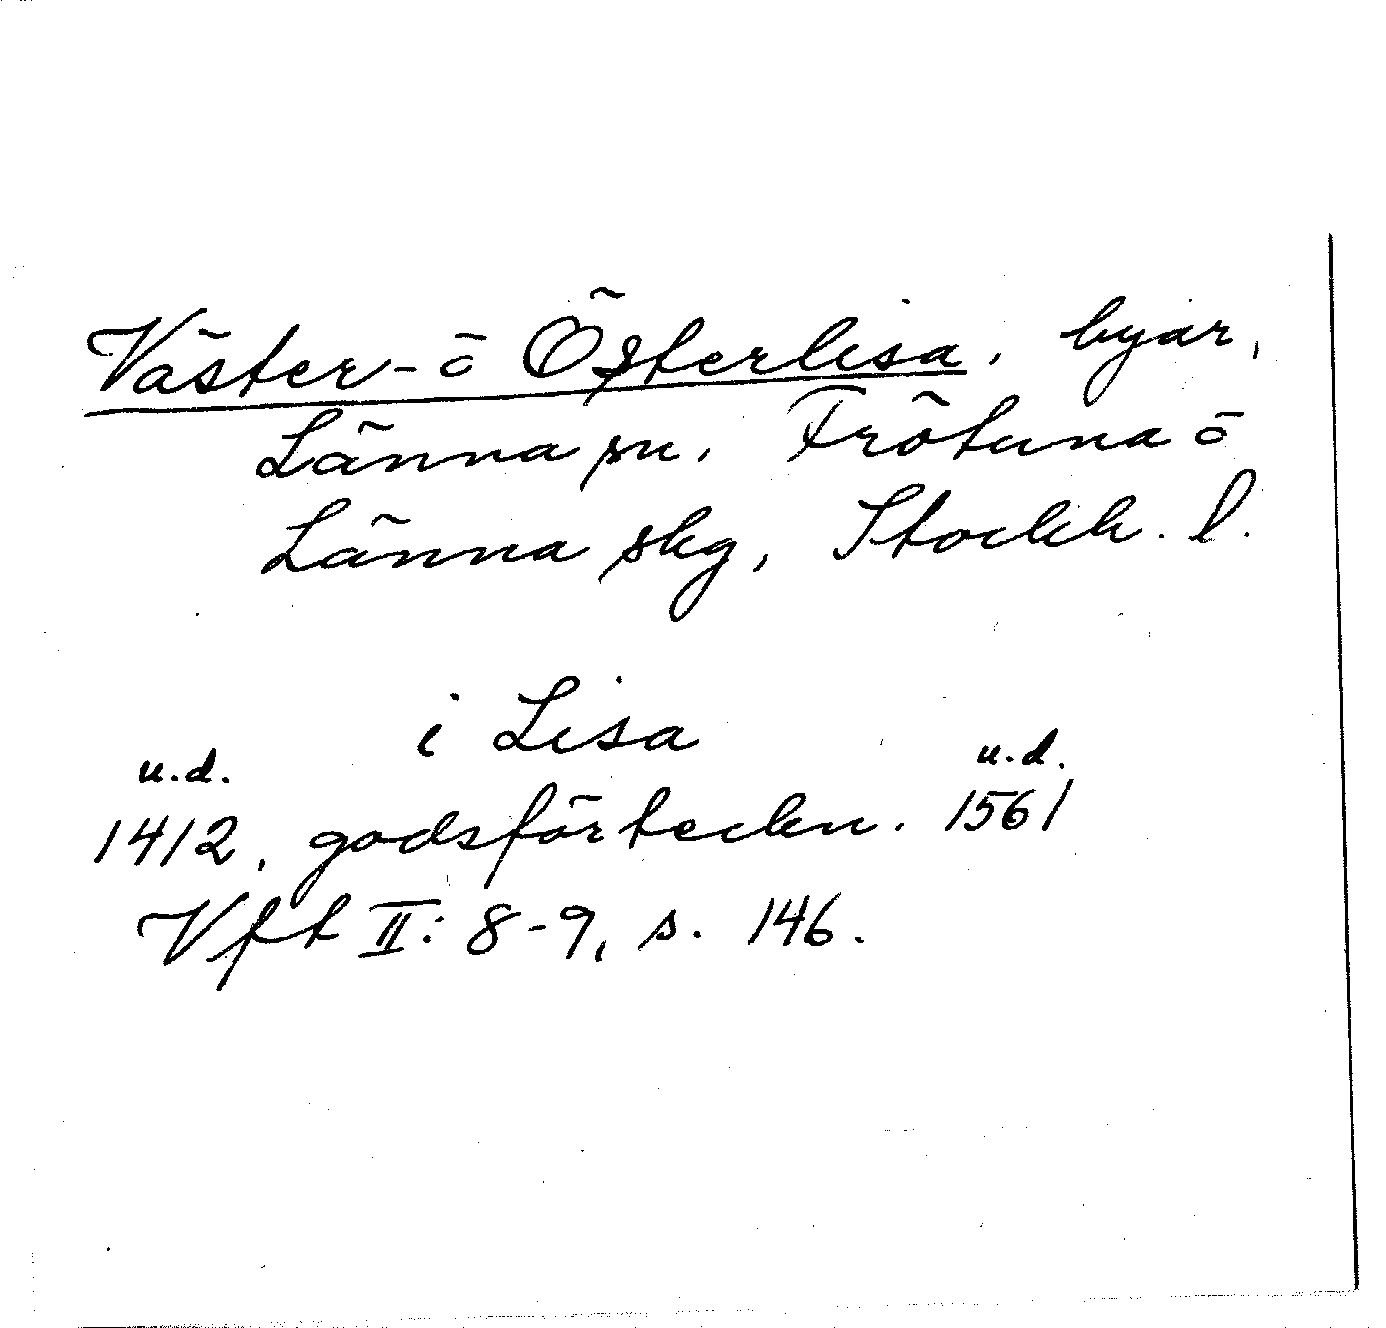 Väster- o Österlisa, byar,
Länna sn. Frötuna o
Länna skg, Stockh. l.
i Lisa
u.d. u.d.
1412, godsförteckn. 1561
Vft II: 8-9, s. 146.